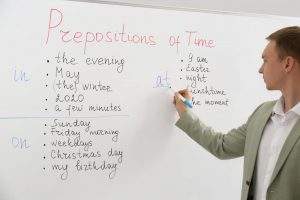 Prepositions of Time
in
• the evening
• May
• (the) winter
• 2020
• a few minutes
on
• Sunday
• Friday morning
• weekdays
• Christmas day
• my birthday
at
• am
• Easter
• night
moment